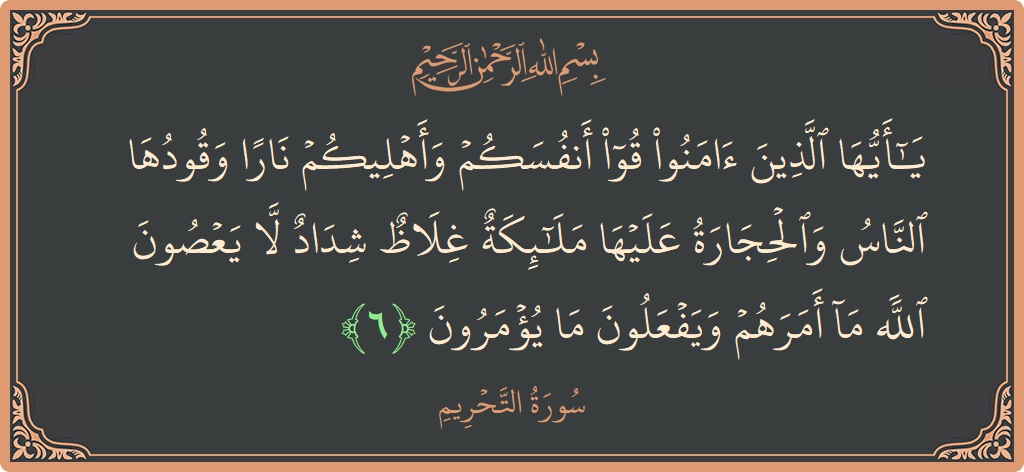 بِسْمِ اللَّهِ الرَّحْمَٰنِ الرَّحِيمِ
يَـٰٓأَيُّهَا ٱلَّذِينَ ءَامَنُوا۟ قُوٓا۟ أَنفُسَكُمْ وَأَهْلِيكُمْ نَارًا وَقُودُهَا
ٱلنَّاسُ وَٱلْحِجَارَةُ عَلَيْهَا مَلَـٰٓئِكَةٌ غِلَاظٌ شِدَادٌ لَّا يَعْصُونَ
ٱللَّهَ مَآ أَمَرَهُمْ وَيَفْعَلُونَ مَا يُؤْمَرُونَ ﴿٦﴾
سُورَةُ التَّحْرِيمِ